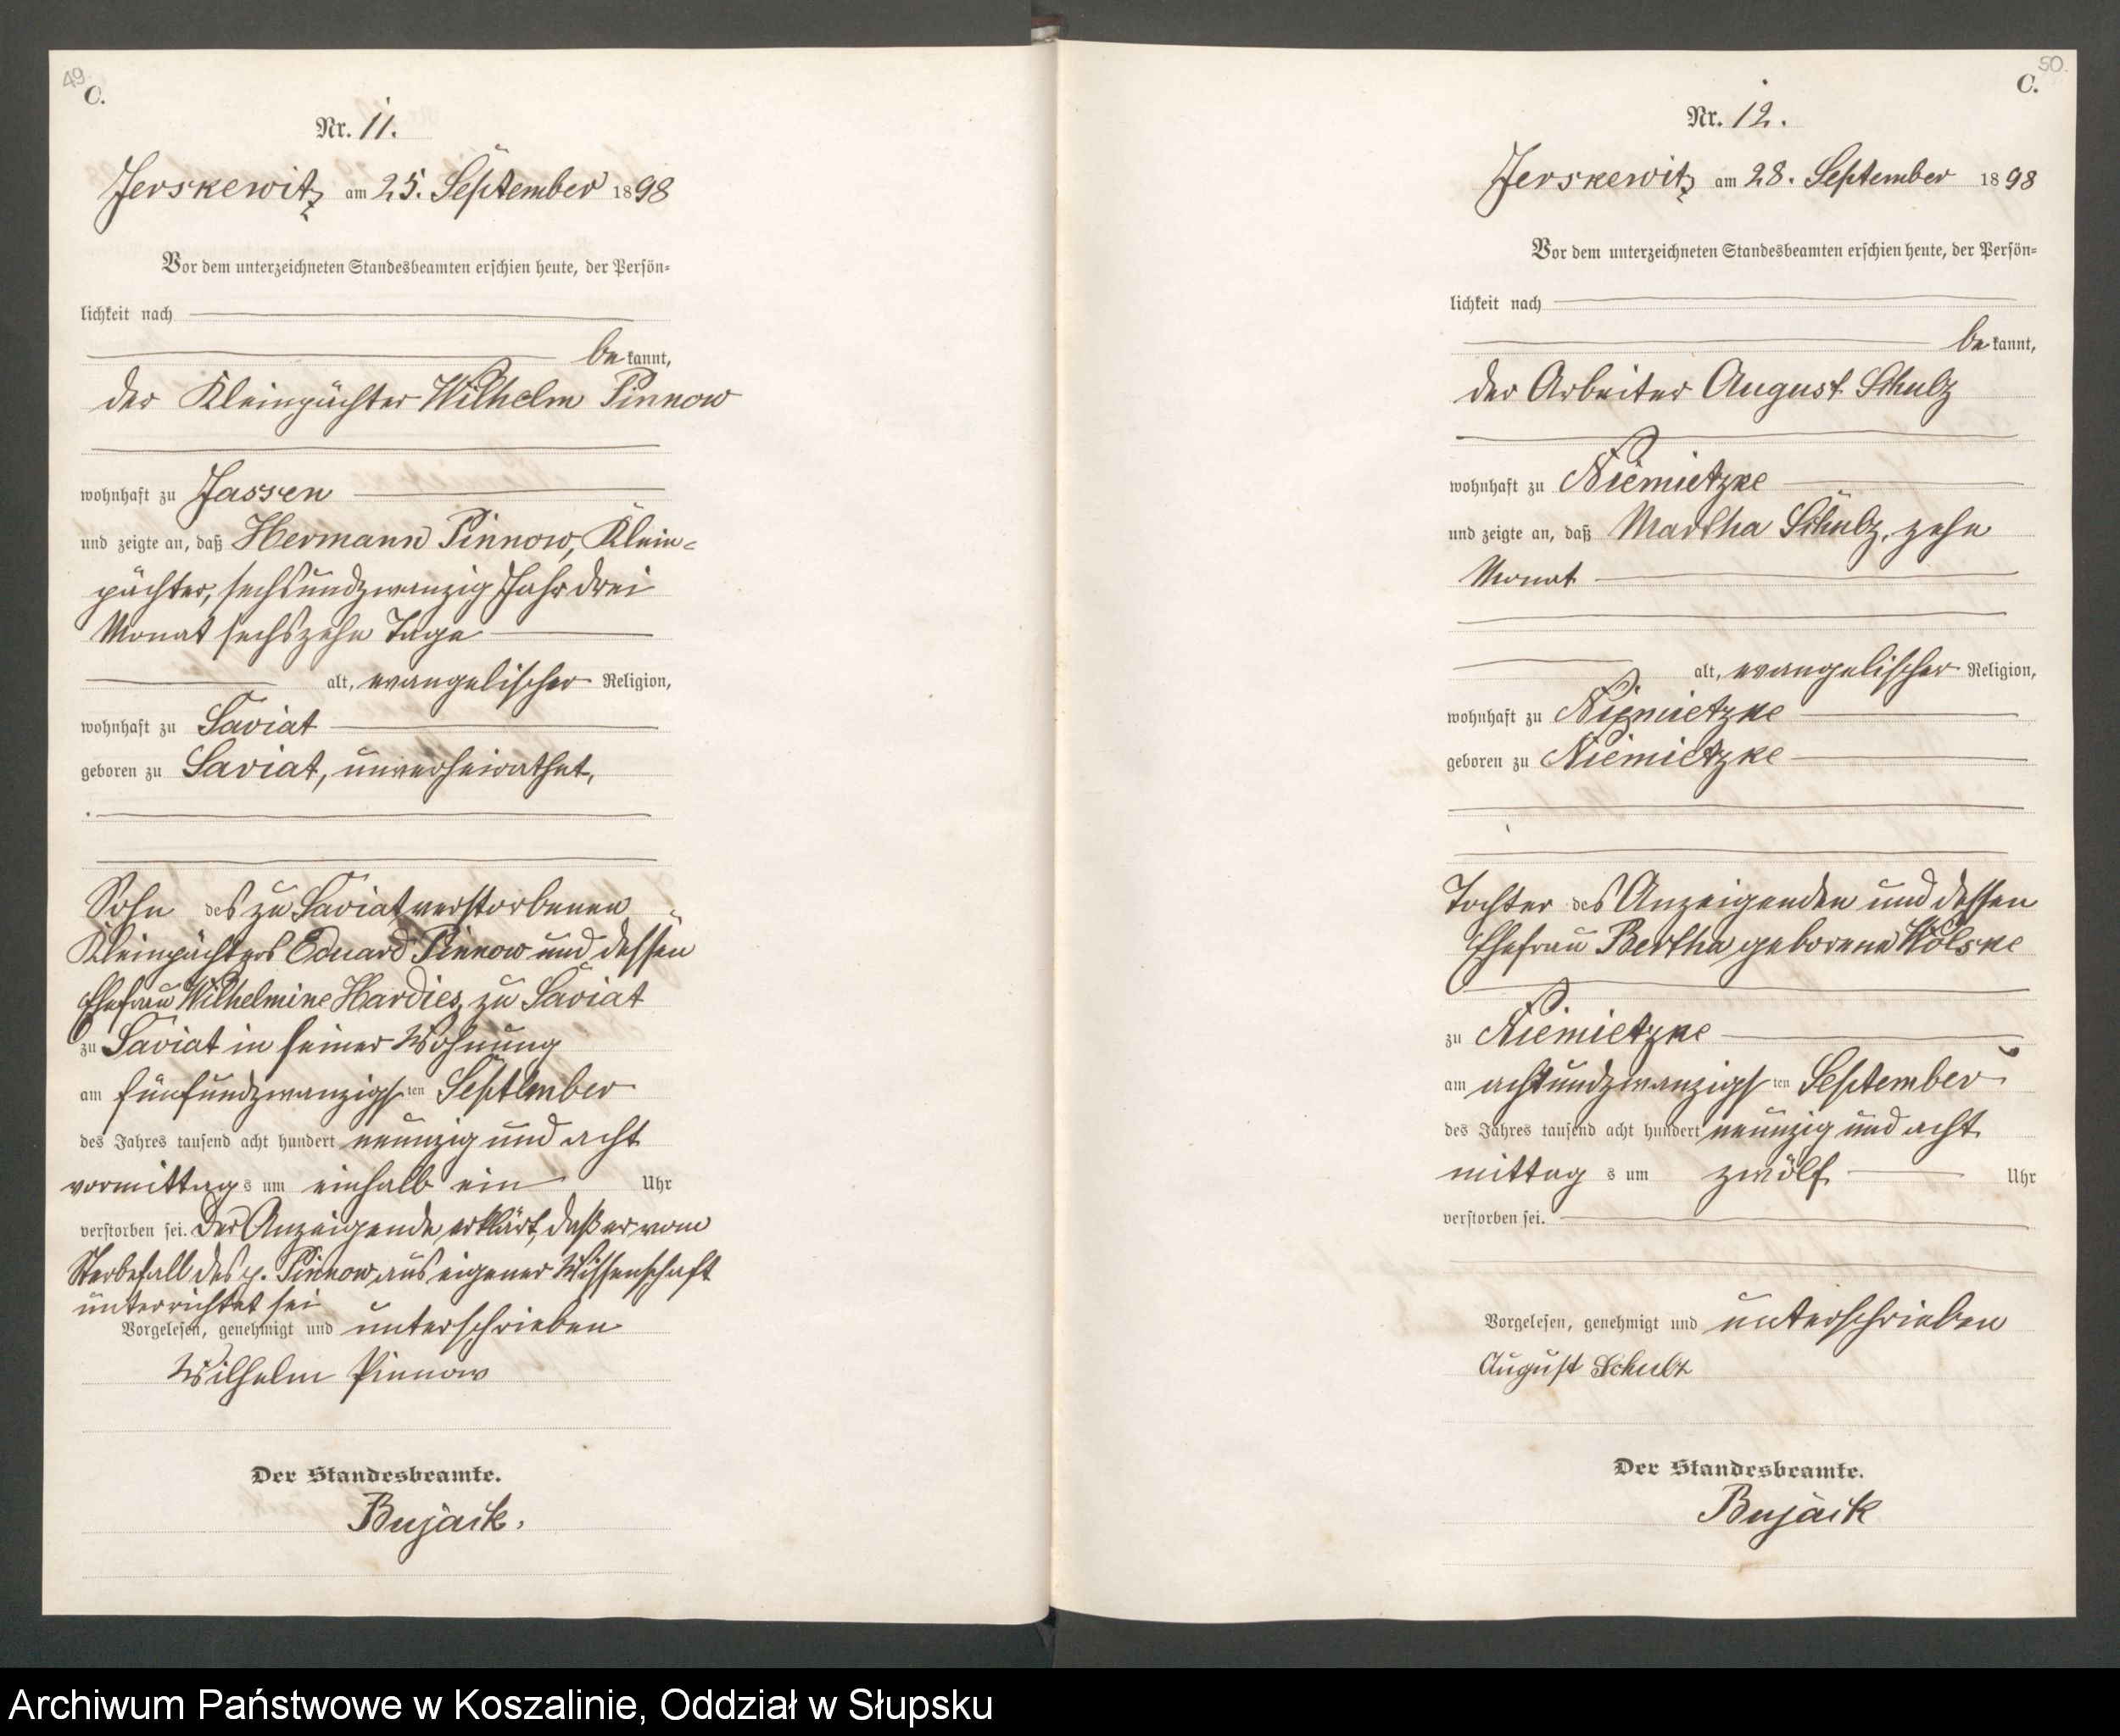 49
C.
Nr. 11.
Jerskewitz am 25. September 1898
Vor dem unterzeichneten Standesbeamten erschien heute, der Persön-
lichkeit nach
bekannt,
der Kleinpächter Wilhelm Pinnow
wohnhaft zu Jassen
und zeigte an, daß Hermann Pinnow, Klein-
pächter, sechsundzwanzig Jahr drei
Monat sechszehn Tage
alt, evangelischer Religion,
wohnhaft zu Saviat
geboren zu Saviat, unverheirathet,
Sohn des zu Saviat verstorbenen
Kleinpächters Eduard Pinnow und dessen
Ehefrau Wilhelmine Hardies, zu Saviat
zu Saviat in seiner Wohnung
am fünfundzwanzigsten September
des Jahres tausend acht hundert neunzig und acht
vormittags um einhalb ein Uhr
verstorben sei. Der Anzeigende erklärt, daß er vom
Sterbefall des p. Pinnow aus eigener Wissenschaft
unterrichtet sei
Vorgelesen, genehmigt und unterschrieben
Wilhelm Pinnow
Der Standesbeamte.
Bujack.
50.
C.
Nr. 12.
Jerskewitz am 28. September 1898
Vor dem unterzeichneten Standesbeamten erschien heute, der Persön-
lichkeit nach
bekannt,
der Arbeiter August Schulz
wohnhaft zu Niemietzke
und zeigte an, daß Martha Schulz, zehn
Monat
alt, evangelischer Religion,
wohnhaft zu Niemietzke
geboren zu Niemietzke
Tochter des Anzeigenden und dessen
Ehefrau Bertha geborene Wölske
zu Niemietzke
am achtundzwanzigsten September
des Jahres tausend acht hundert neunzig und acht
mittags um zwölf Uhr
verstorben sei.
Vorgelesen, genehmigt und unterschrieben
August Schulz
Der Standesbeamte.
Bujack
Archiwum Państwowe w Koszalinie, Oddział w Słupsku